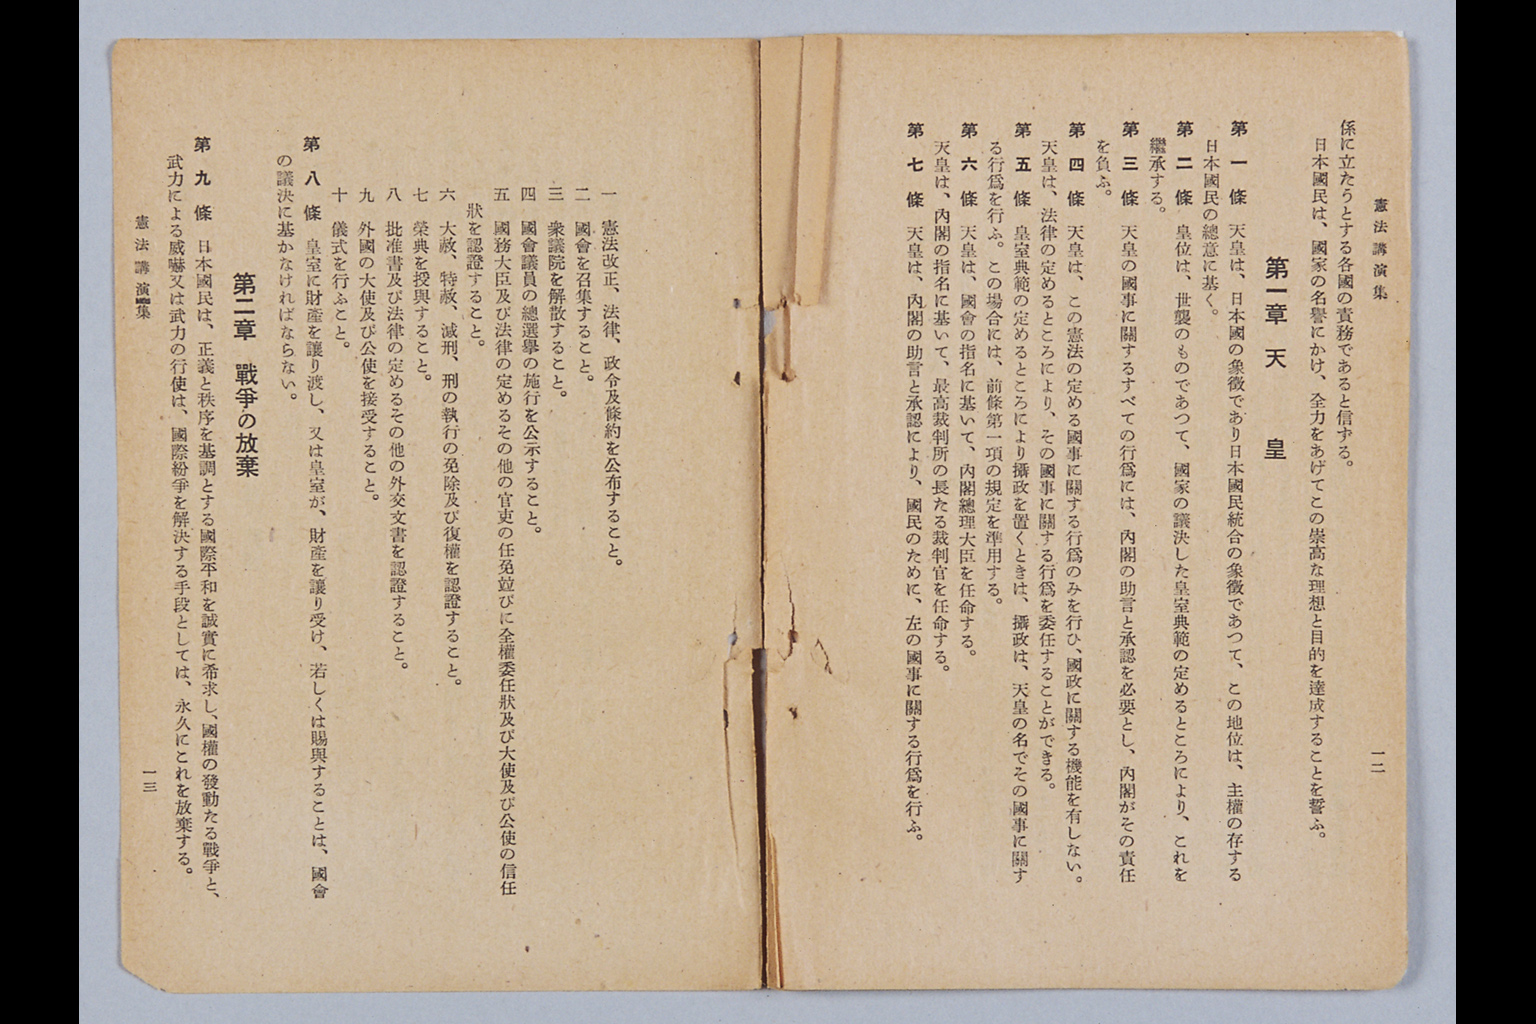 憲法講演集
一二
係に立たうとする各國の責務であると信ずる。
日本國民は、國家の名譽にかけ、全力をあげてこの崇高な理想と目的を達成することを誓ふ。
第一章 天皇
第一條 天皇は、日本國の象徴であり日本國民統合の象徴であつて、この地位は、主權の存する
日本國民の總意に基く。
第二條 皇位は、世襲のものであつて、國家の議決した皇室典範の定めるところにより、これを
繼承する。
第三條 天皇の國事に關するすべての行爲には、內閣の助言と承認を必要とし、內閣がその責任
を負ふ。
第四條 天皇は、この憲法の定める國事に關する行爲のみを行ひ、國政に關する機能を有しない。
天皇は、法律の定めるところにより、その國事に關する行爲を委任することができる。
第五條 皇室典範の定めるところにより攝政を置くときは、攝政は、天皇の名でその國事に關す
る行爲を行ふ。この場合には、前條第一項の規定を準用する。
第六條 天皇は、國會の指名に基いて、內閣總理大臣を任命する。
天皇は、內閣の指名に基いて、最高裁判所の長たる裁判官を任命する。
第七條 天皇は、內閣の助言と承認により、國民のために、左の國事に關する行爲を行ふ。
一 憲法改正、法律、政令及條約を公布すること。
二 國會を召集すること。
三 衆議院を解散すること。
四 國會議員の總選擧の施行を公示すること。
五 國務大臣及び法律の定めるその他の官吏の任免竝びに全權委任狀及び大使及び公使の信任
狀を認證すること。
六 大赦、特赦、減刑、刑の執行の免除及び復權を認證すること。
七 榮典を授與すること。
八 批准書及び法律の定めるその他の外交文書を認證すること。
九 外國の大使及び公使を接受すること。
十 儀式を行ふこと。
第八條 皇室に財產を讓り渡し、又は皇室が、財產を讓り受け、若しくは賜與することは、國會
の議決に基かなければならない。
第二章 戰爭の放棄
第九條 日本國民は、正義と秩序を基調とする國際平和を誠實に希求し、國權の發動たる戰爭と、
武力による威嚇又は武力の行使は、國際紛爭を解決する手段としては、永久にこれを放棄する。
憲法講演集
一三